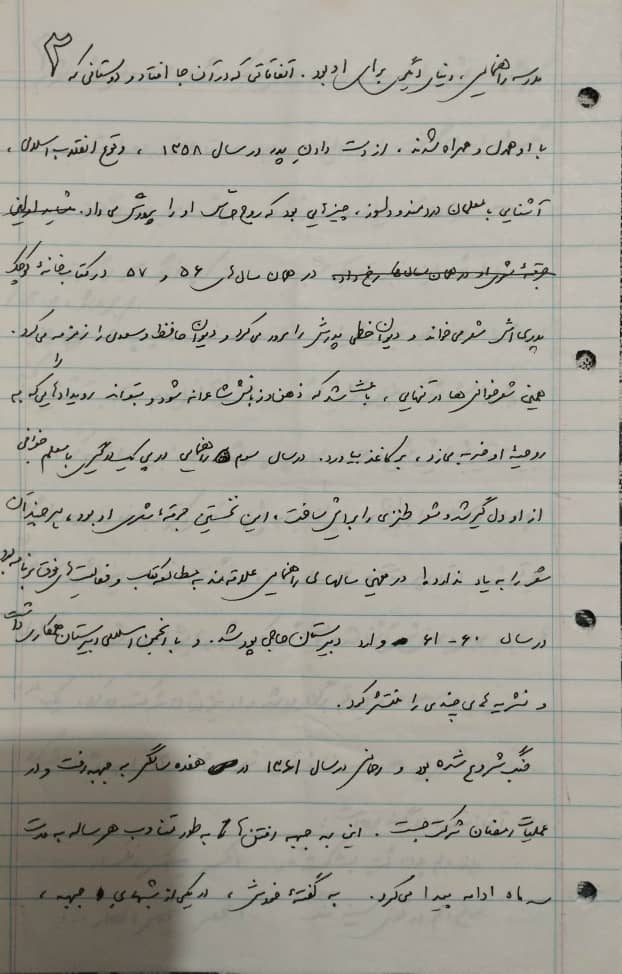 ۳
مدرسه راهنمایی، دنیای دیگری برای او بود. اتفاقاتی که در آن جا افتاد و دوستانی که
با او همدل و همراه شدند. از دست دادن پدر در سال ۱۳۵۸، وقوع انقلاب اسلامی،
آشنایی با معلمان دردمند و دلسوز، چیزهایی بود که روح حساس او را پرورش می‌داد. شاید اولین
جرقهٔ شعری او در همان سال‌ها رخ داد. در همان سال‌های ۵۶ و ۵۷ در کتابخانهٔ کوچک
پدری‌اش شعر می‌خواند و دیوان خطی پدرش را مرور می‌کرد و دیوان حافظ و سعدی را زمزمه می‌کرد.
همین شعرخوانی‌ها در تنهایی، باعث شد که ذهن و زبانش شاعرانه شود و بتواند رویدادهایی را که به
روحیهٔ او ضربه می‌زد، بر کاغذ بیاورد. در سال سوم راهنمایی در پی یک درگیری با معلم جغرافی
از او دل‌گیر شد و شعر طنزی را برایش ساخت. این نخستین جرقهٔ شعری او بود، هر چند آن
شعر را به یاد ندارد! در همین سالهای راهنمایی علاقه‌مند به مطالعه کتاب و فعالیت‌های فوق برنامه بود
در سال ۶۰-۶۱ وارد دبیرستان حاجی‌پور شد. و با انجمن اسلامی دبیرستان همکاری داشت
و نشریه‌های چندی را منتشر کرد.
جنگ شروع شده بود و رحمانی در سال ۱۳۶۱ در هفده سالگی به جبهه رفت و در
عملیات رمضان شرکت جست. این به جبهه رفتن‌ها به طور تناوب هر ساله به مدت
سه ماه ادامه پیدا می‌کرد. به گفتهٔ خودش، در یکی از شبهای جبهه،